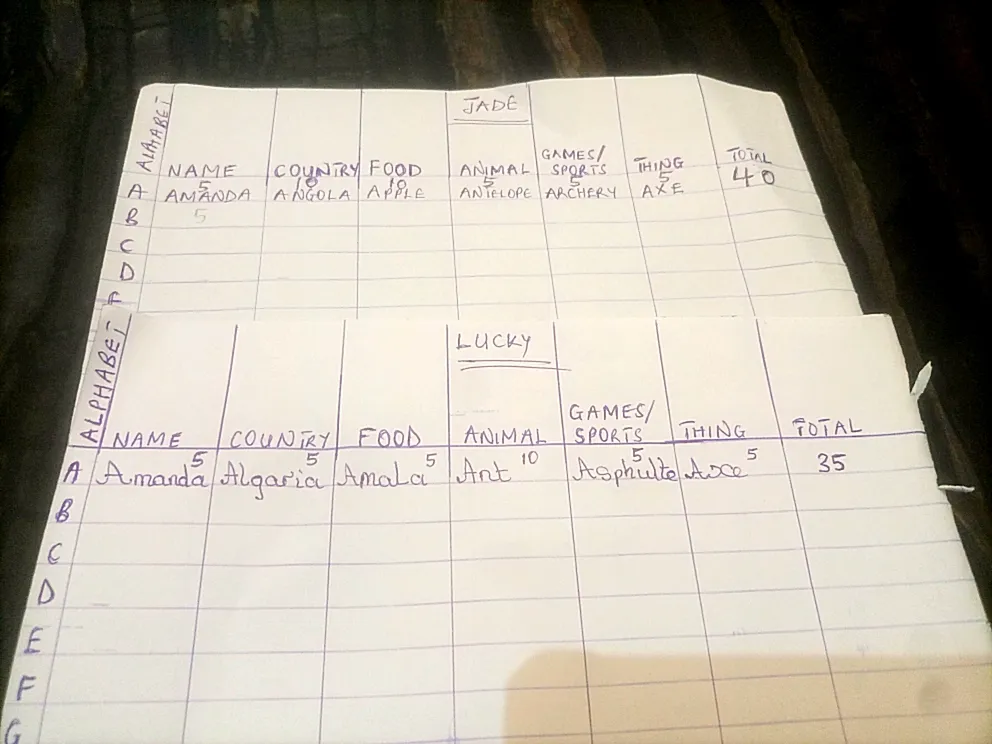 JADE
ALHABET NAME COUNTRY FOOD ANIMAL GAMES/ SPORTS THING TOTAL
5 10 10 5 5 5 40
A AMANDA ANGOLA APPLE ANTELOPE ARCHERY AXE
B 5
C
D
F
LUCKY
ALPHABET NAME COUNTRY FOOD ANIMAL GAMES/ SPORTS THING TOTAL
A Amanda 5 Algaria 5 Amala 5 Ant 10 Asphulte 5 Axe 5 35
B
C
D
E
F
G